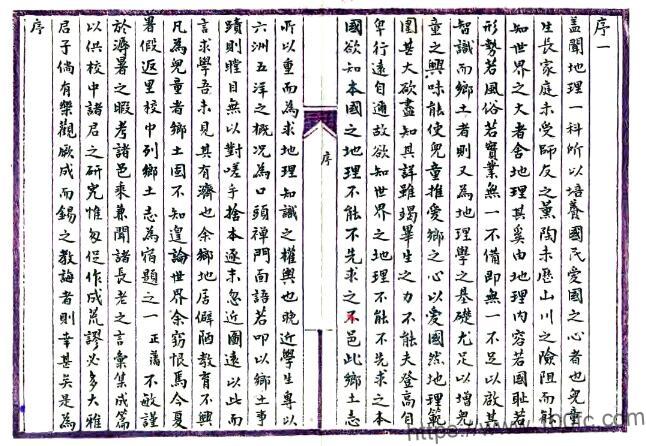 序一
盖聞地理一科所以培養國民愛國之心者也兒童
生長家庭未受師友之薰陶未歷山川之險阻而能
知世界之大者舍地理其奚由地理內容若國耻若
形勢若風俗若實業無一不備即無一不足以啟其
智識而鄉土者則又為地理學之基礎尤足以增兒
童之興味能使兒童推愛鄉之心以愛國然地理範
圍甚大欲盡知其詳雖竭畢生之力不能夫登高自
卑行遠自邇故欲知世界之地理不能不先求之本
國欲知本國之地理不能不先求之本邑此鄉土志
序
所以重而為求地理知識之權輿也晩近學生專以
六洲五洋之概況為口頭禪門面語若叩以鄉土事
蹟則瞠目無以對嗟乎捨本逐末忽近圖遠以此而
言求學吾未見其有濟也余鄉地居僻陋教育不興
凡為兒童者鄉土固不知遑論世界余竊恨焉今夏
暑假返里校中列鄉土志為宿題之一正藩不敏謹
於溽暑之暇考諸邑乘兼聞諸長老之言彙集成篇
以供校中諸君之研究惟匆促作成荒謬必多大雅
君子倘有樂觀厥成而錫之教誨者則幸甚矣是為
序